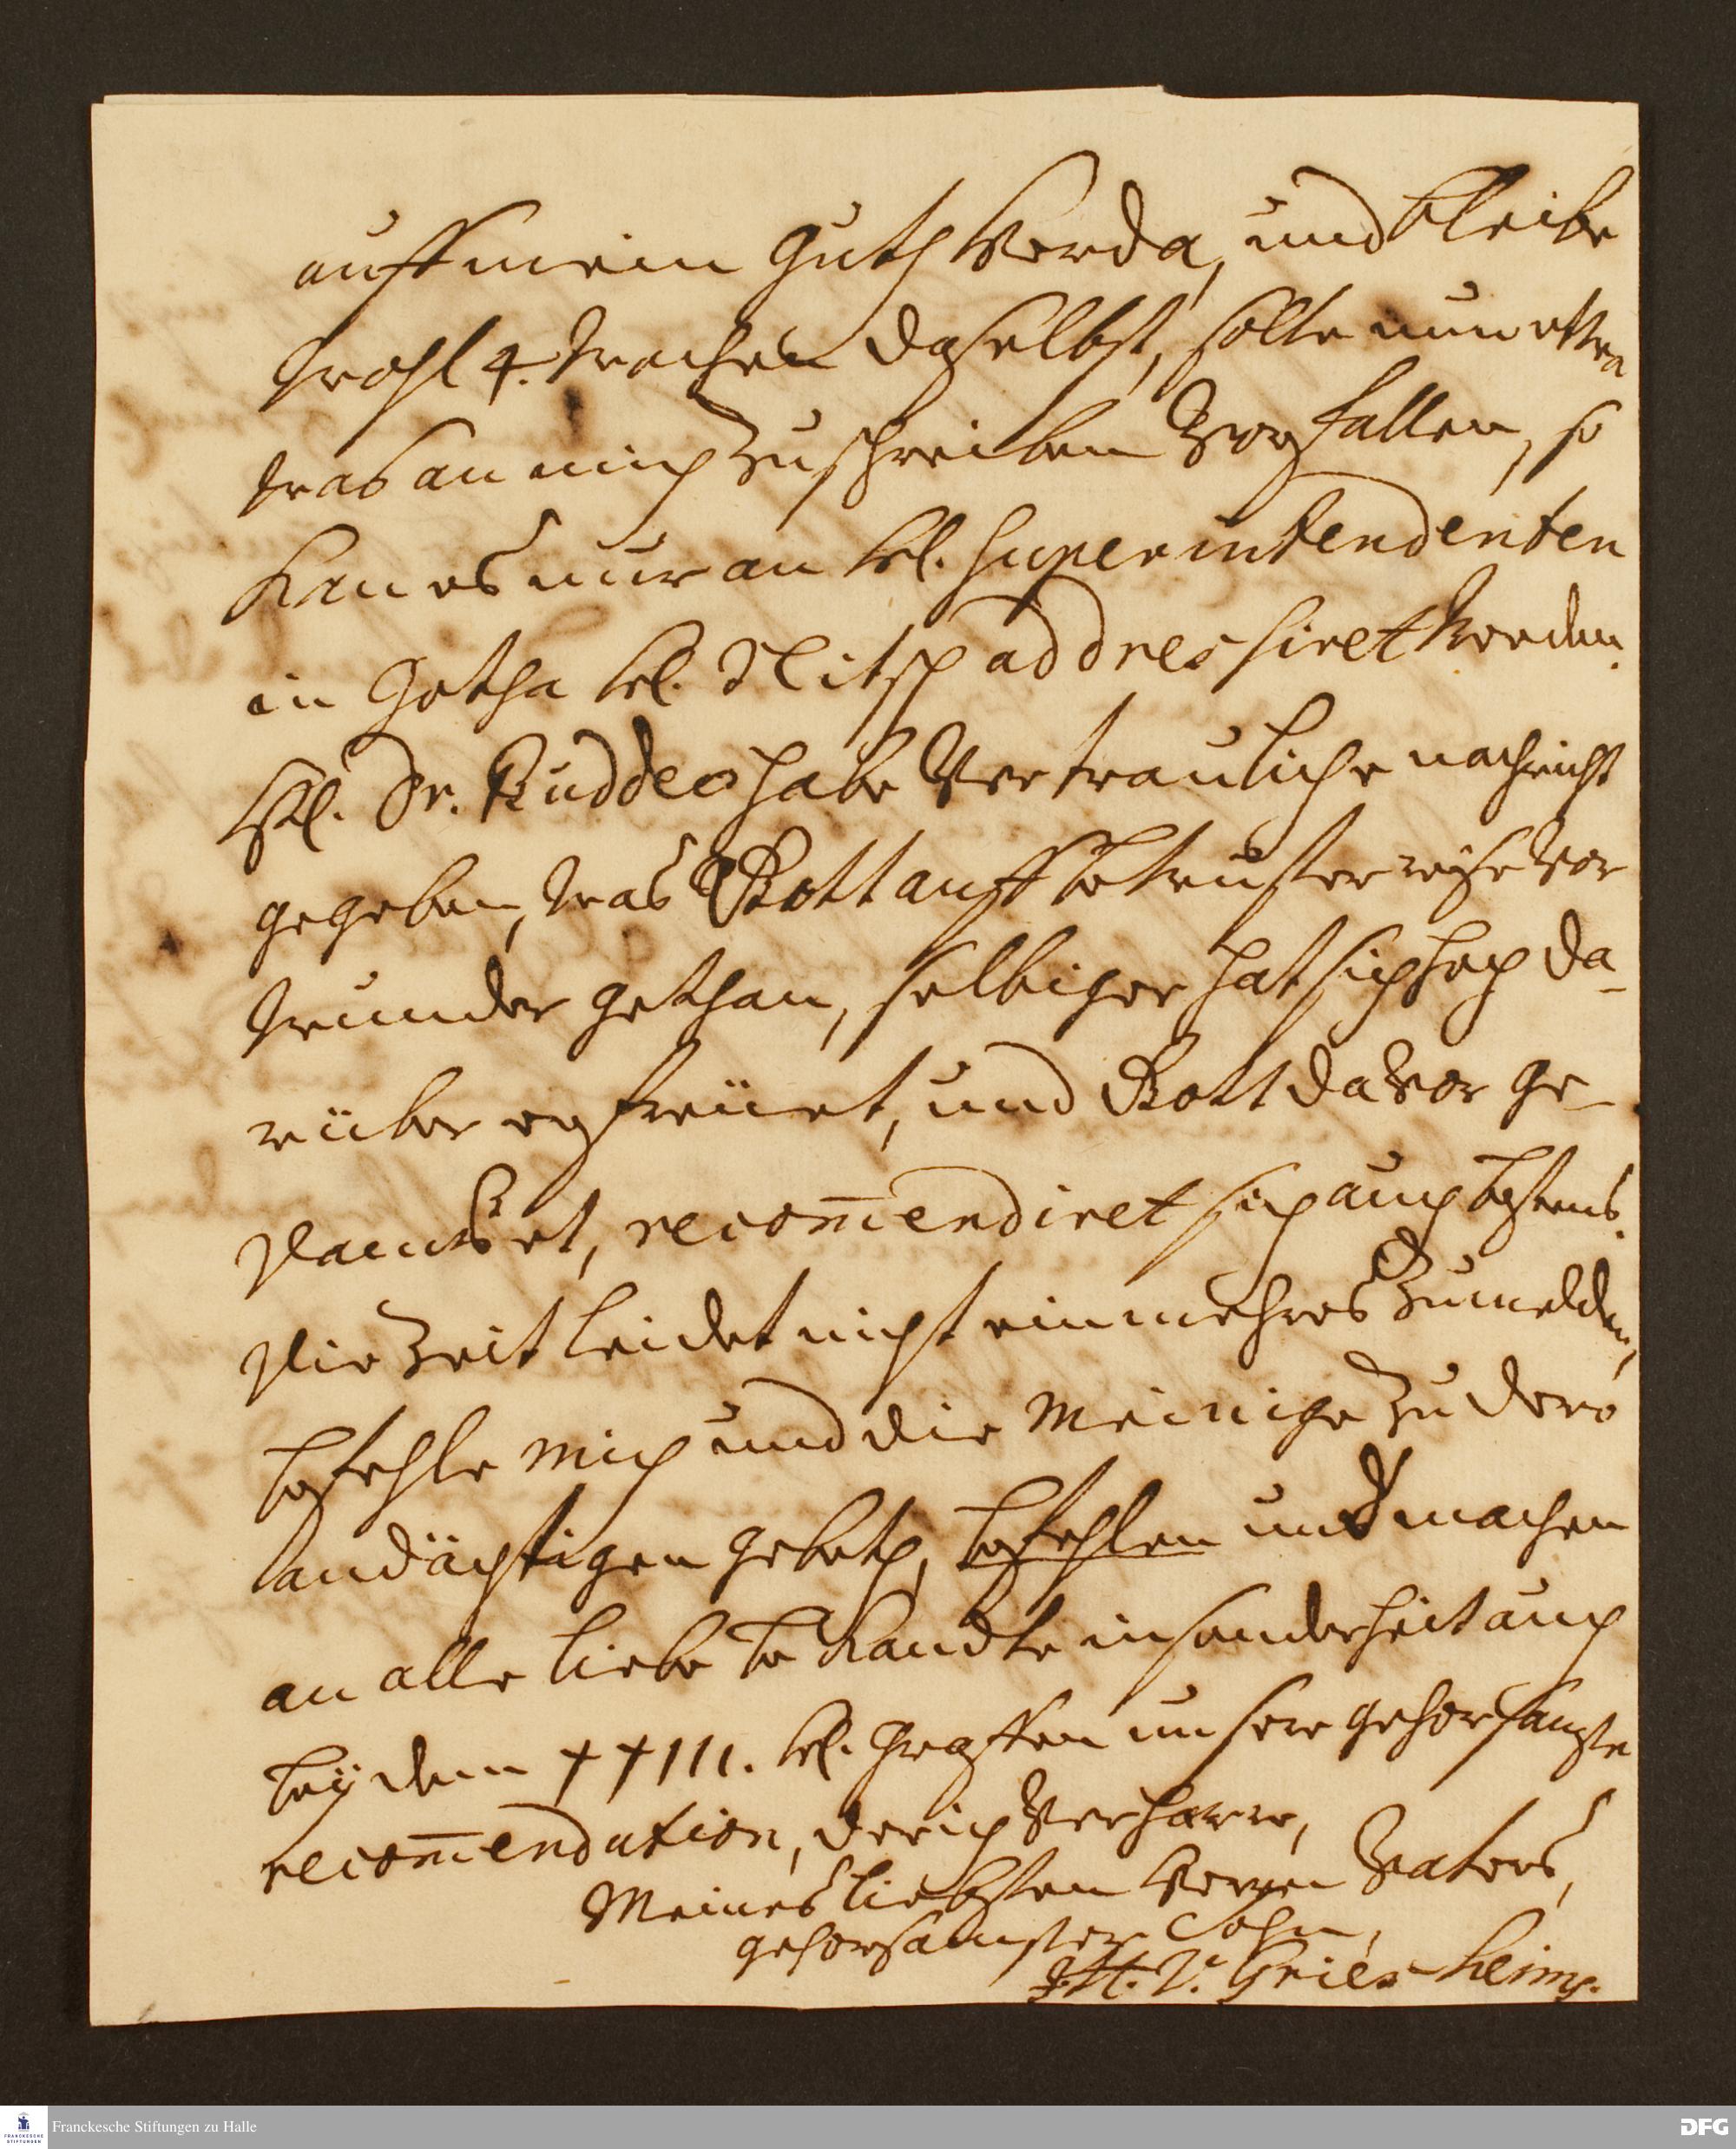 auff mein Guth Werda, und bleibe
wohl 4. wochen daselbst, solte nun etwa
was an mich zu schreiben vorfallen, so
kan es nur an H. Superintendenten
in Gotha H. Nitsch addressiret werden.
H. Dr. Buddeo habe vertrauliche nachricht
gegeben, was Gott auff bewuster reise vor
wunder gethan, selbiger hat sich hoch da-
rüber erfreuet, und Gott davor ge-
dancket, recom̄endiret sich auch bestens.
Die Zeit leidet nicht ein mehres zu melden,
befehle mich und die Meinige zu dero
andächtigen gebeth, befehlen und machen
an alle liebe bekandte insonderheit auch
bey dem H. Graffen unsere gehorsamste
recom̄endation, der ich verharre,
Meines liebsten Herren Vaters,
gehorsamster Sohn,
V. Griesheim.
Franckesche Stiftungen zu Halle
FRANCKESCHE STIFTUNGEN
DFG